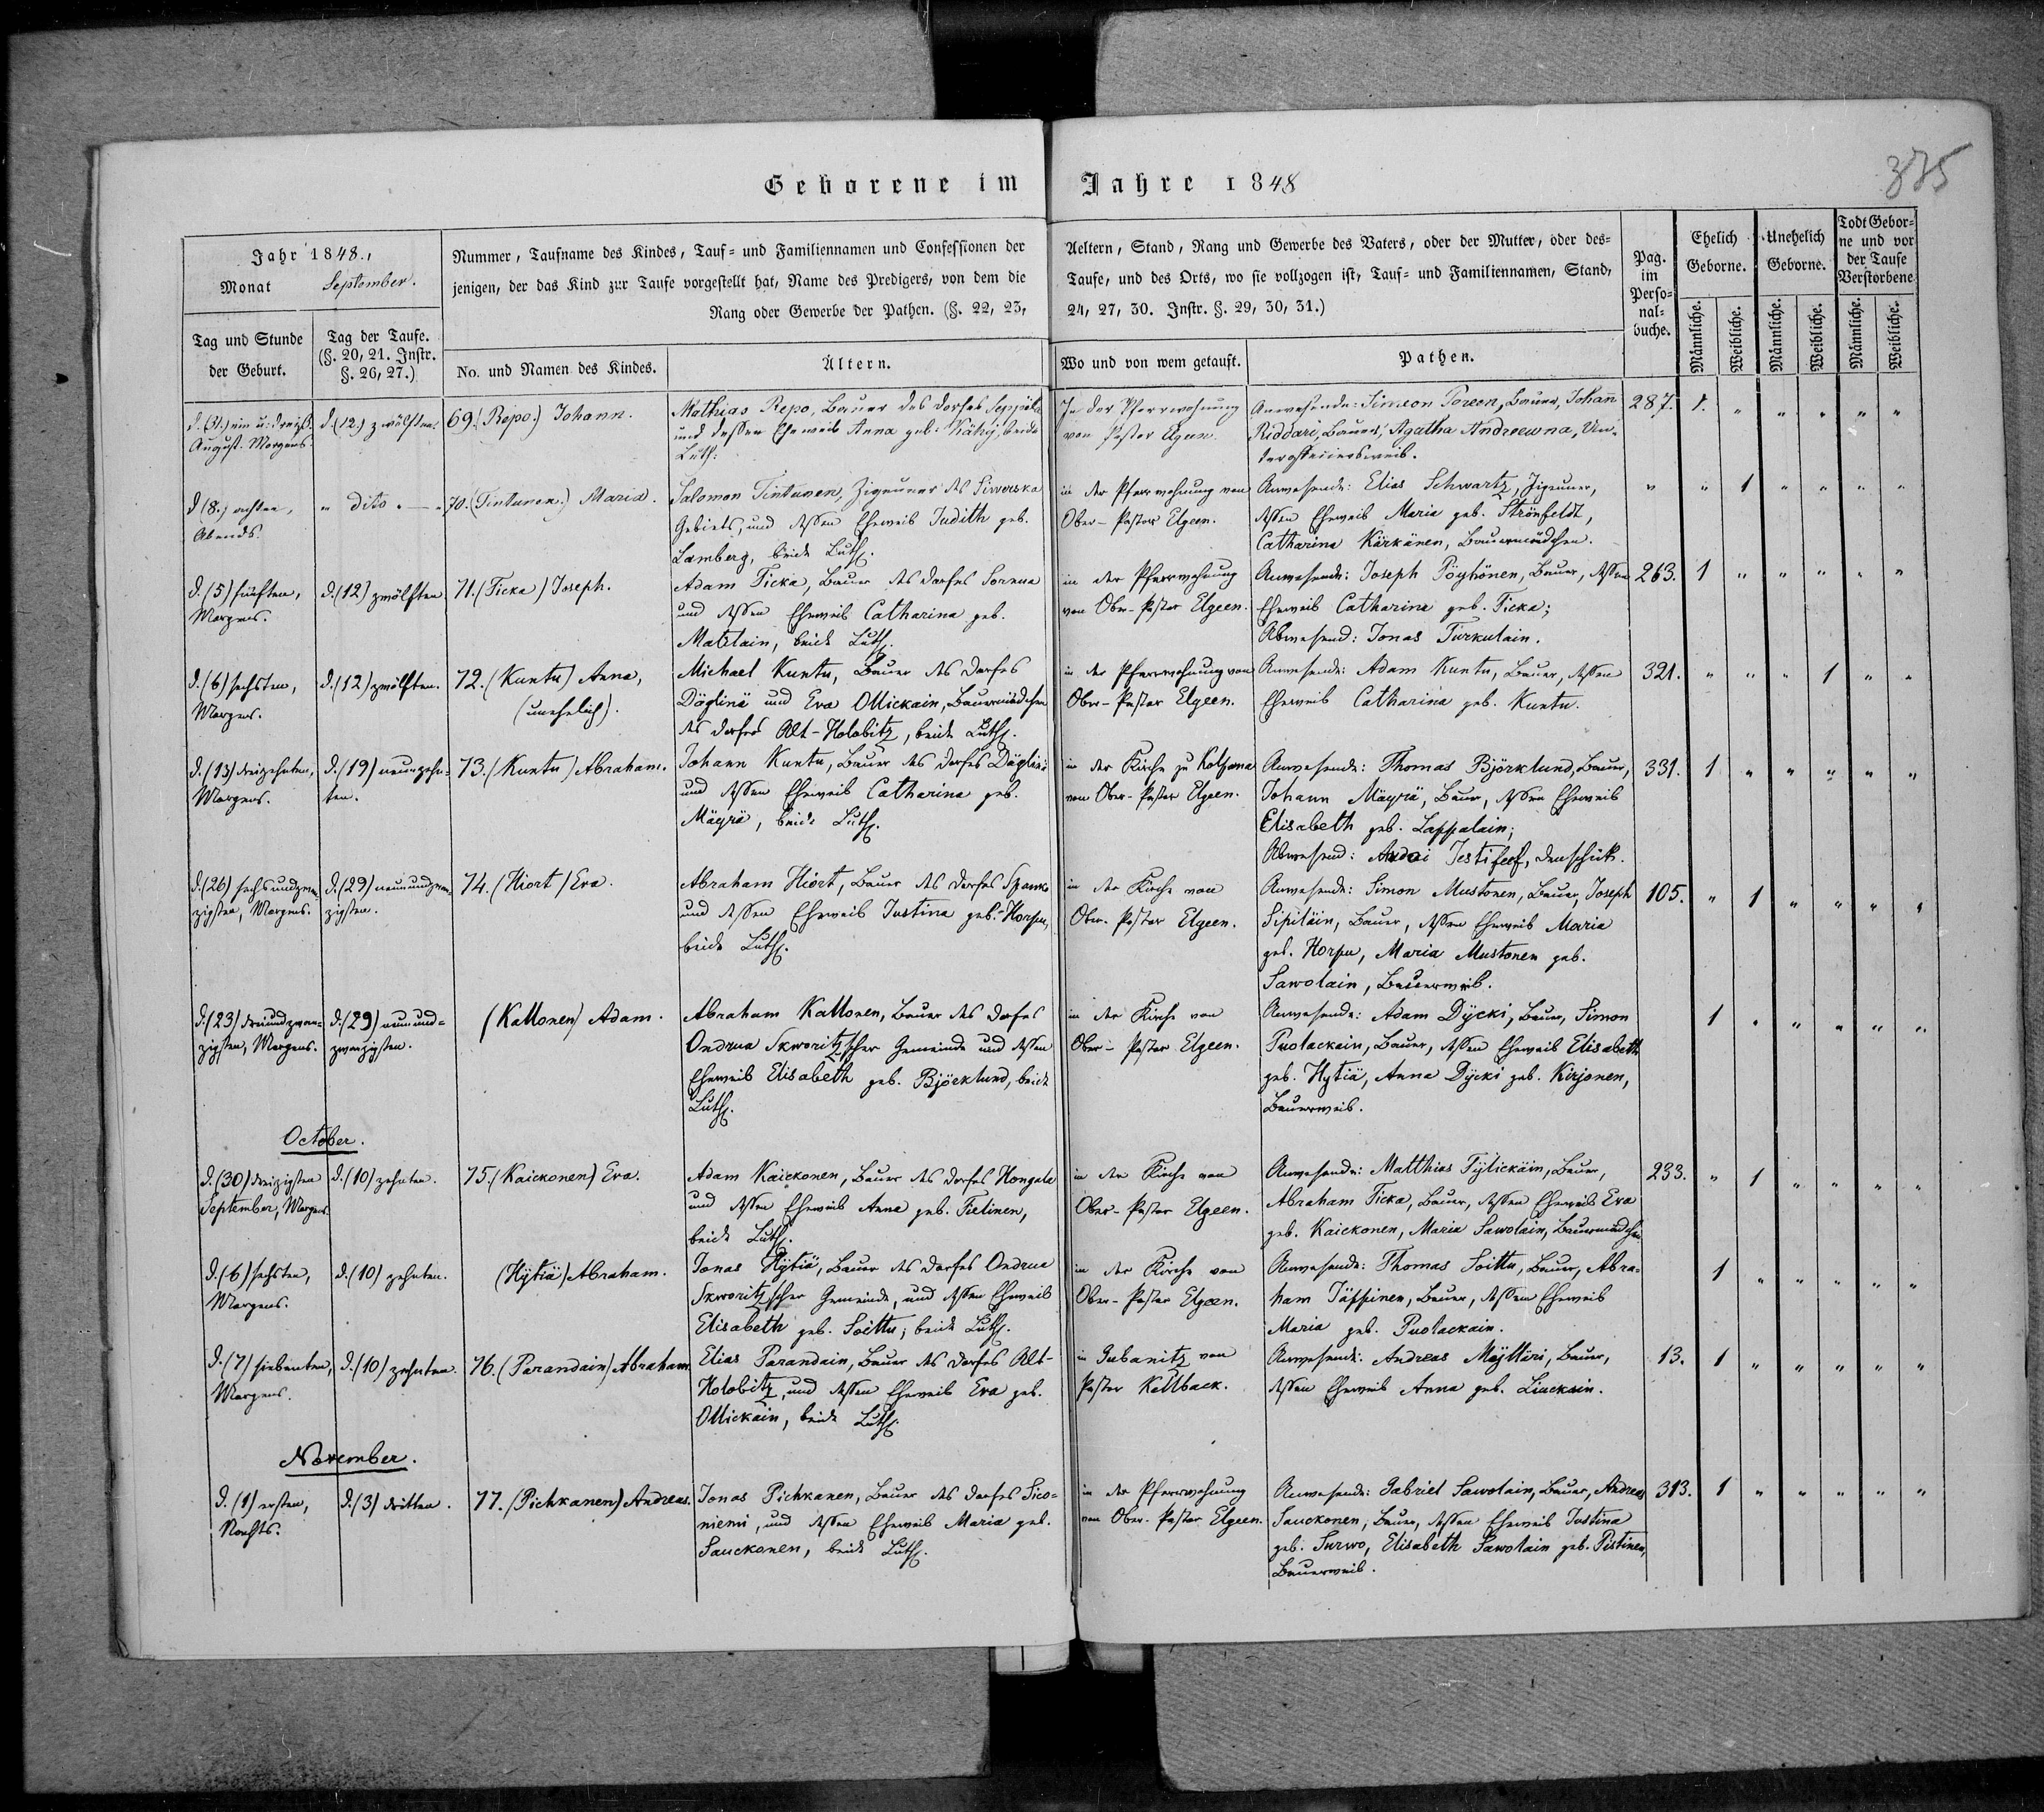 Geborene im Jahre 1848
375
Jahr 1848.,
Monat September.
Nummer, Taufname des Kindes, Tauf- und Familiennamen und Confessionen der Aeltern, Stand, Rang und Gewerbe des Vaters, oder der Mutter, oder des-
jenigen, der das Kind zur Taufe vorgestellt hat, Name des Predigers, von dem die Taufe, und des Orts, wo sie vollzogen ist, Tauf- und Familiennamen, Stand,
Rang oder Gewerbe der Pathen. (§. 22, 23, 24, 27, 30. Instr. §. 29, 30, 31.)
Pag.
im
Perso-
nal-
buche.
Ehelich
Geborne.
Unehelich
Geborne.
Todt Gebor-
ne und vor
der Taufe
Verstorbene
Tag und Stunde
der Geburt.
Tag der Taufe.
(§. 20, 21. Instr.
§. 26, 27.)
No. und Namen des Kindes.
Ältern.
Wo und von wem getauft.
Pathen.
Männliche.
Weibliche.
Männliche.
Weibliche.
Männliche.
Weibliche.
d. (31.) ein u: dreißd.
August. Morgens.
d. (12.) zwölften
69. (Repo.) Johann.
Mathias Repo, Bauer des Dorfes Seppäla
und dessen Eheweib Anna geb: Käky, beide
Luth:
In der Pfarrwohnung
von Pastor Elgeen.
Anwesende: Simeon Poreen, Bauer, Johan
Riddari, Bauer, Agatha Andreewna, Un-
terofficiersweib.
287. 1. " " " " "
d (8.) achten,
Abends.
" dito " — "
70. (Tintunen.) Maria.
Salomon Tintunen, Zigeuner des Siwerska
Gebiets, und dessen Eheweib Judith geb.
Lamberg, beide Luth.
in der Pfarrwohnung von
Ober-Pastor Elgeen.
Anwesende: Elias Schwartz, Zigeuner,
dessen Eheweib Maria geb. Strönfeldt,
Catharina Kärkänen, Bauermädchen.
" " 1 " " " "
d. (5) fünften,
Morgens.
d. (12) zwölften
71. (Ticka) Joseph.
Adam Ticka, Bauer des Dorfes Sorena
und dessen Eheweib Catharina geb.
Matzlain, beide Luth.
in der Pfarrwohnung
von Ober-Pastor Elgeen.
Anwesende: Joseph Pöyhönen, Bauer, dessen
Eheweib Catharina geb. Ticka;
Abwesend: Jonas Turkulain.
263. 1 " " " " "
d. (6) sechsten,
Morgens.
d. (12) zwölften.
72. (Kuntu) Anna,
(unehelich).
Michael Kuntu, Bauer des Dorfes
Däglinä und Eva Ollickain, Bauermädchen
des Dorfes Alt-Holobitz, beide Luth.
in der Pfarrwohnung von
Ober-Pastor Elgeen.
Anwesende: Adam Kuntu, Bauer, dessen
Eheweib Catharina geb. Kuntu.
321. " " " 1 " "
d. (13) dreizehnten,
Morgens.
d. (19) neunzehn-
ten.
73. (Kuntu) Abraham.
Johann Kuntu, Bauer des Dorfes Däglinä
und dessen Eheweib Catharina geb.
Mäyrä, beide Luth.
in der Kirche zu Kolpana
von Ober-Pastor Elgeen.
Anwesende: Thomas Björklund, Bauer,
Johann Mäyrä, Bauer, dessen Eheweib
Elisabeth geb. Lappalain;
Abwesend:
331. 1 " " " " "
d. (26) sechsundzwan-
zigsten, Morgens.
d. (29) neunundzwan-
zigsten.
74. (Hiort) Eva.
Abraham Hiort, Bauer des Dorfes Spanko
und dessen Eheweib Justina geb. Horpu,
beide Luth.
in der Kirche von
Ober-Pastor Elgeen.
Anwesende: Simon Mustonen, Bauer, Joseph
Sipiläin, Bauer, dessen Eheweib Maria
geb. Horpu, Maria Mustonen geb.
Sawolain, Bauerweib.
105. " 1 " " " "
d. (23) dreiundzwan-
zigsten, Morgens.
d. (29) neunund-
zwanzigsten.
(Kallonen) Adam.
Abraham Kallonen, Bauer des Dorfes
Ondrua Skworitzscher Gemeinde und dessen
Eheweib Elisabeth geb. Björcklund, beide
Luth.
in der Kirche von
Ober-Pastor Elgeen.
Anwesende: Adam Dycki, Bauer, Simon
Puolackain, Bauer, dessen Eheweib Elisabeth
geb. Hytiä, Anna Dycki geb. Kirjonen,
Bauerweib.
1 " " " " "
October.
d. (30) dreizigsten
September, Morgens.
d. (10) zehnten.
75. (Kaickonen) Eva.
Adam Kaickonen, Bauer des Dorfes Hongola
und dessen Eheweib Anna geb. Tielinen,
beide Luth.
in der Kirche von
Ober-Pastor Elgeen.
Anwesende: Matthias Tylickäin, Bauer,
Abraham Ticka, Bauer, dessen Eheweib Eva
geb. Kaickonen, Maria Sawolain, Bauermädchen
233. " 1 " " " "
d. (6) sechsten,
Morgens.
d. (10) zehnten.
(Hytiä) Abraham.
Jonas Hytiä, Bauer des Dorfes Ondrua
Skworitzscher Gemeinde, und dessen Eheweib
Elisabeth geb. Soittu; beide Luth.
in der Kirche von
Ober-Pastor Elgeen.
Anwesende: Thomas Soittu, Bauer, Abra-
ham Jäppinen, Bauer, dessen Eheweib
Maria geb. Puolackain.
1 " " " " "
d. (7) siebenten,
Morgens.
d. (10) zehnten.
76. (Parandain) Abraham.
Elias Parandain, Bauer des Dorfes Alt-
Holobitz, und dessen Eheweib Eva geb.
Ollickain, beide Luth.
in Gubanitz von
Pastor Kellback.
Anwesende: Andreas Mäylläri, Bauer,
dessen Eheweib Anna geb. Liuckain.
13. 1 " " " " "
November.
d. (1) ersten,
Nachts.
d. (3) dritten.
77. (Pichkanen) Andreas.
Jonas Pichkanen, Bauer des Dorfes Sico-
niemi, und dessen Eheweib Maria geb.
Sauckonen, beide Luth.
in der Pfarrwohnung
von Ober-Pastor Elgeen.
Anwesende: Gabriel Sawolain, Bauer, Andreas
Sauckonen, Bauer, dessen Eheweib Justina
geb. Surwo, Elisabeth Sawolain geb. Pistinen,
Bauerweib.
313. 1 " " " " "